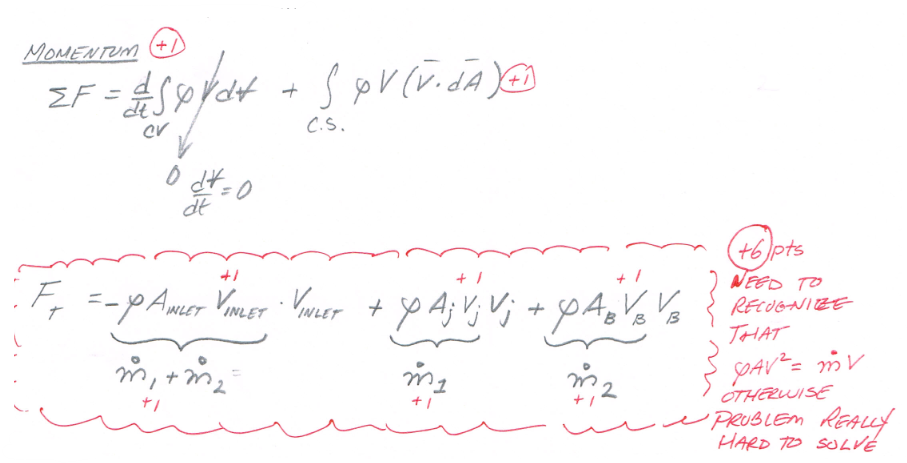 MOMENTUM +1
ΣF = d/dt ∫ φVdV + ∫ φV(V̄·dĀ) +1
CV C.S.
0 dV/dt = 0
+6 pts
+1 +1 +1
F_T = -φA_INLET V_INLET · V_INLET + φA_j V_j V_j + φA_B V_B V_B
ṁ₁ + ṁ₂ = ṁ₁ ṁ₂
+1 +1 +1
NEED TO
RECOGNIZE
THAT
φAV² = ṁV
OTHERWISE
PROBLEM REALLY
HARD TO SOLVE